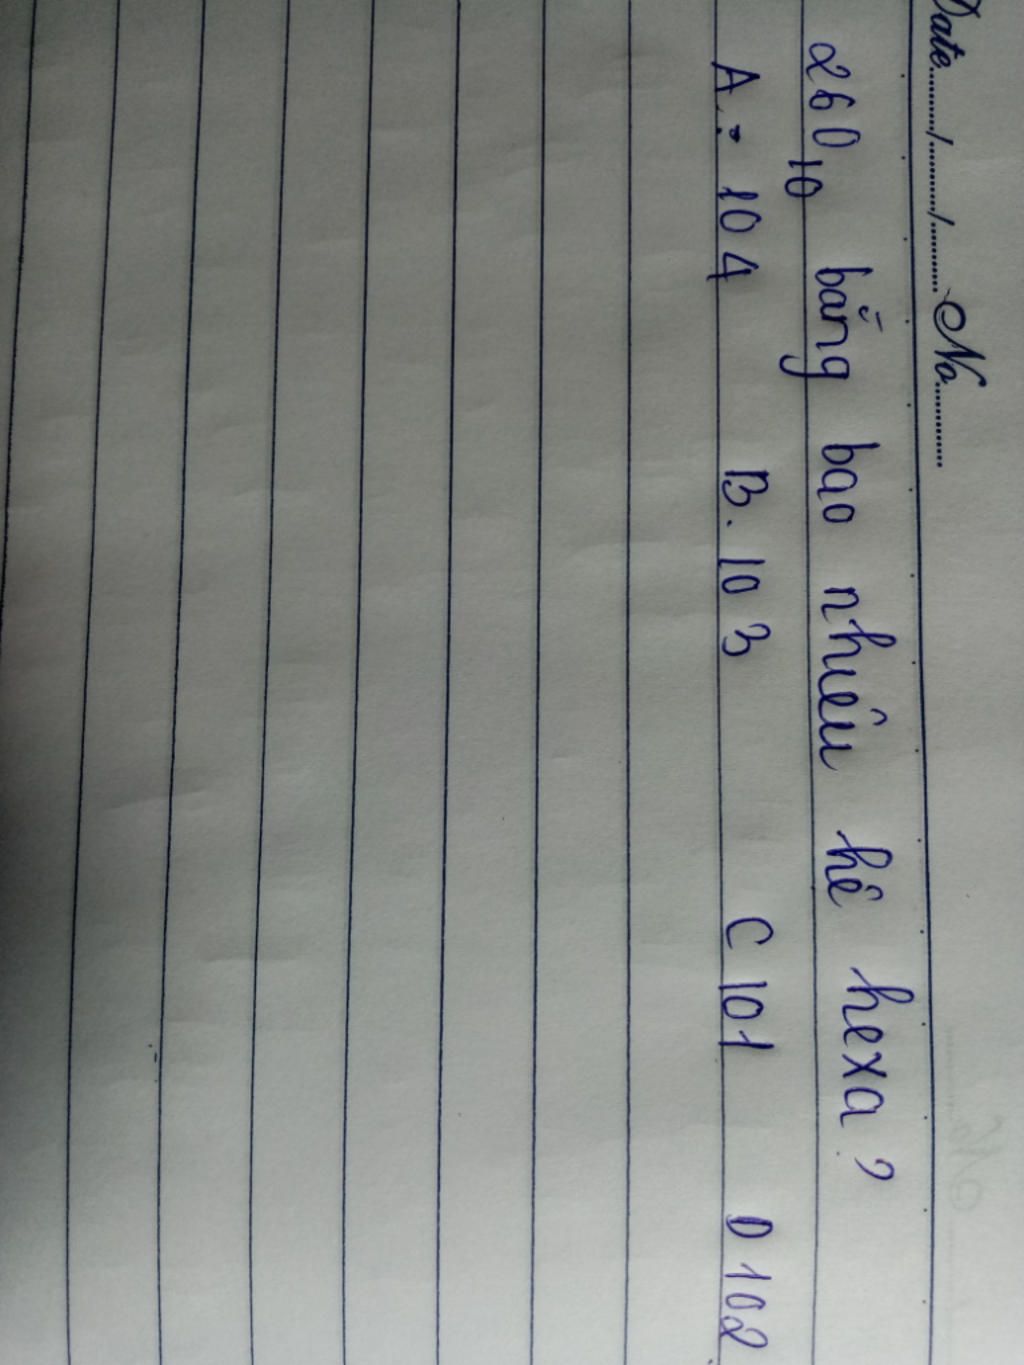 Date........./........./......... No...........
260₁₀ bằng bao nhiêu hê hexa?
A. 104 B. 103 C 101 D 102